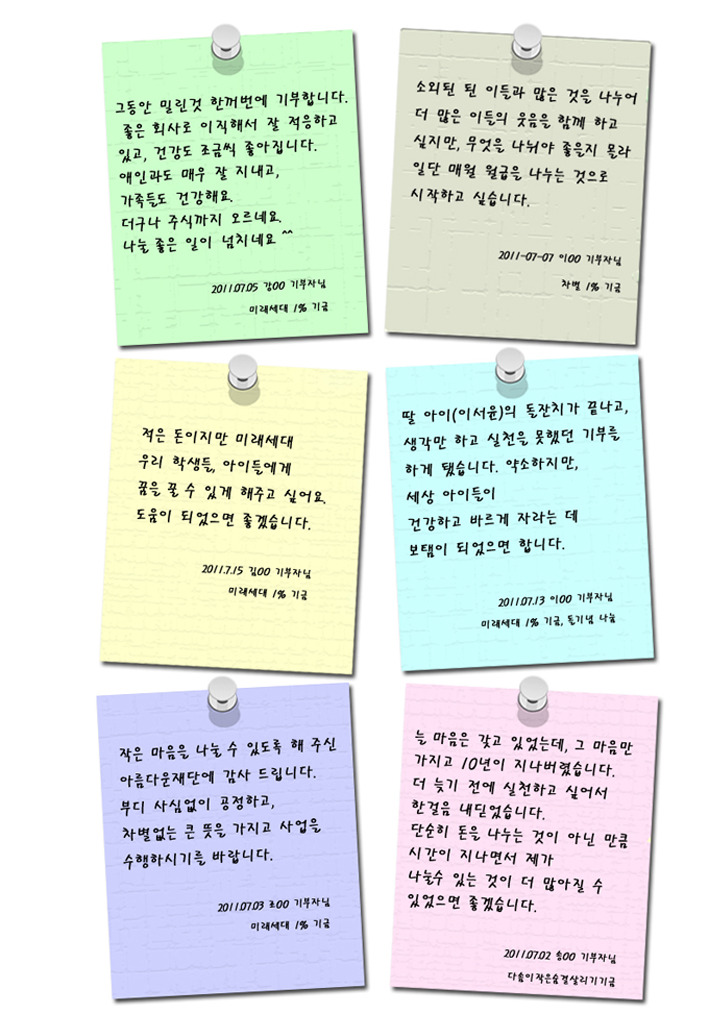 그동안 밀린것 한꺼번에 기부합니다.
좋은 회사로 이직해서 잘 적응하고
있고, 건강도 조금씩 좋아집니다.
애인과도 매우 잘 지내고,
가족들도 건강해요.
더구나 주식까지 오르네요.
나눌 좋은 일이 넘치네요 ^^
2011.07.05 강00 기부자님
미래세대 1% 기금
소외된 된 이들과 많은 것을 나누어
더 많은 이들의 웃음을 함께 하고
싶지만, 무엇을 나눠야 좋을지 몰라
일단 매월 월급을 나누는 것으로
시작하고 싶습니다.
2011-07-07 이00 기부자님
차별 1% 기금
적은 돈이지만 미래세대
우리 학생들, 아이들에게
꿈을 꿀 수 있게 해주고 싶어요.
도움이 되었으면 좋겠습니다.
2011.7.15 김00 기부자님
미래세대 1% 기금
딸 아이(이서윤)의 돌잔치가 끝나고,
생각만 하고 실천을 못했던 기부를
하게 됐습니다. 약소하지만,
세상 아이들이
건강하고 바르게 자라는 데
보탬이 되었으면 합니다.
2011.07.13 이00 기부자님
미래세대 1% 기금, 돌기념 나눔
작은 마음을 나눌 수 있도록 해 주신
아름다운재단에 감사 드립니다.
부디 사심없이 공정하고,
차별없는 큰 뜻을 가지고 사업을
수행하시기를 바랍니다.
2011.07.03 조00 기부자님
미래세대 1% 기금
늘 마음은 갖고 있었는데, 그 마음만
가지고 10년이 지나버렸습니다.
더 늦기 전에 실천하고 싶어서
한걸음 내딛었습니다.
단순히 돈을 나누는 것이 아닌 만큼
시간이 지나면서 제가
나눌수 있는 것이 더 많아질 수
있었으면 좋겠습니다.
2011.07.02 송00 기부자님
다솜이작은숨결살리기기금